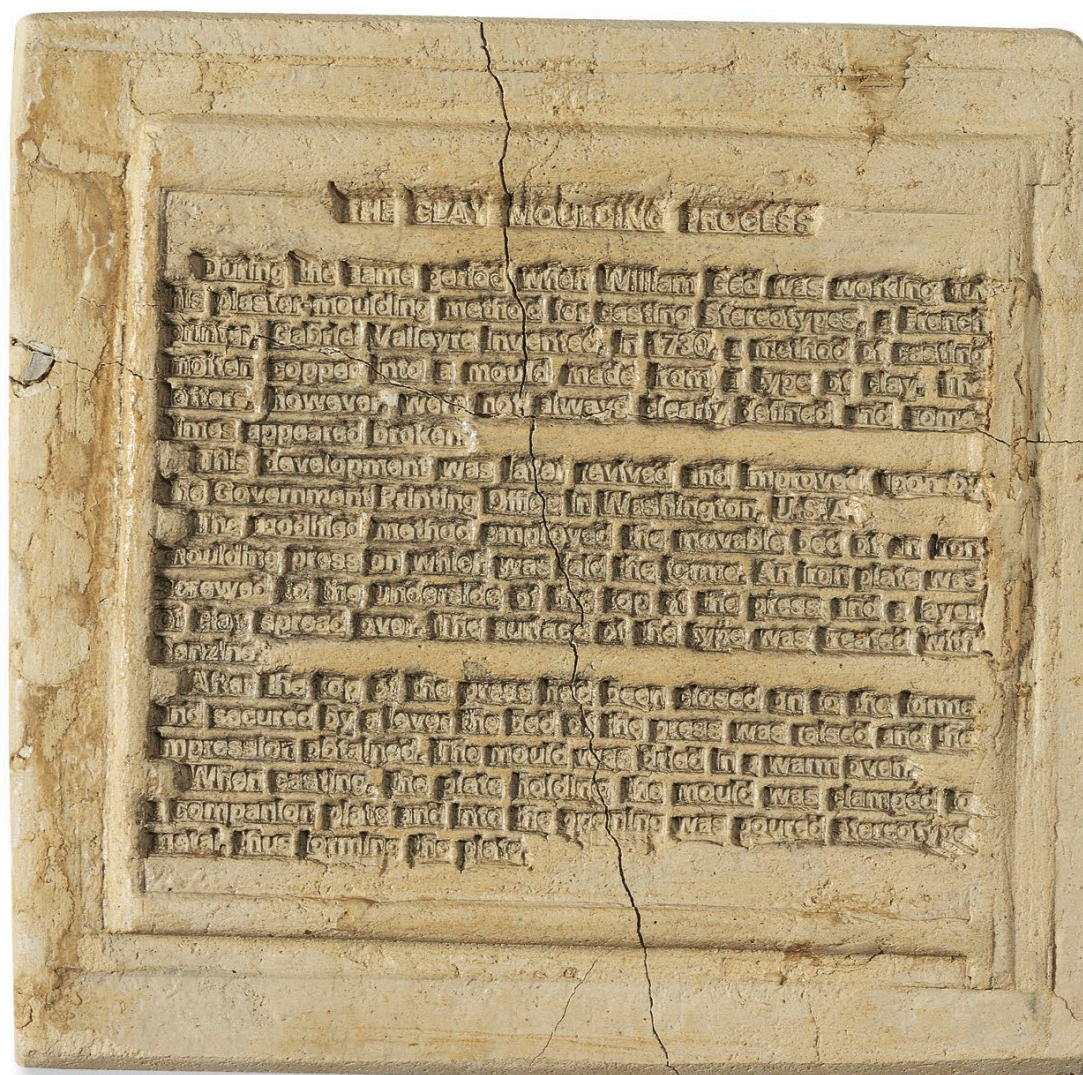 THE CLAY MOULDING PROCESS
During the same period when William Ged was working on
his plaster-moulding method for casting stereotypes, a French
printer, Gabriel Valleyre invented, in 1730, a method of casting
molten copper into a mould made from a type of clay. The
letters, however, were not always clearly defined and some-
times appeared broken.
This development was later revived and improved upon by
the Government Printing Office in Washington, U.S.A.
The modified method employed the movable bed of an iron
moulding press on which was laid the forme. An iron plate was
screwed to the underside of the top of the press and a layer
of clay spread over. The surface of the type was treated with
benzine.
After the top of the press had been closed on to the forme
and secured by a lever the bed of the press was raised and the
impression obtained. The mould was dried in a warm oven.
When casting, the plate holding the mould was clamped to
a companion plate and into the opening was poured stereotype
metal, thus forming the plate.